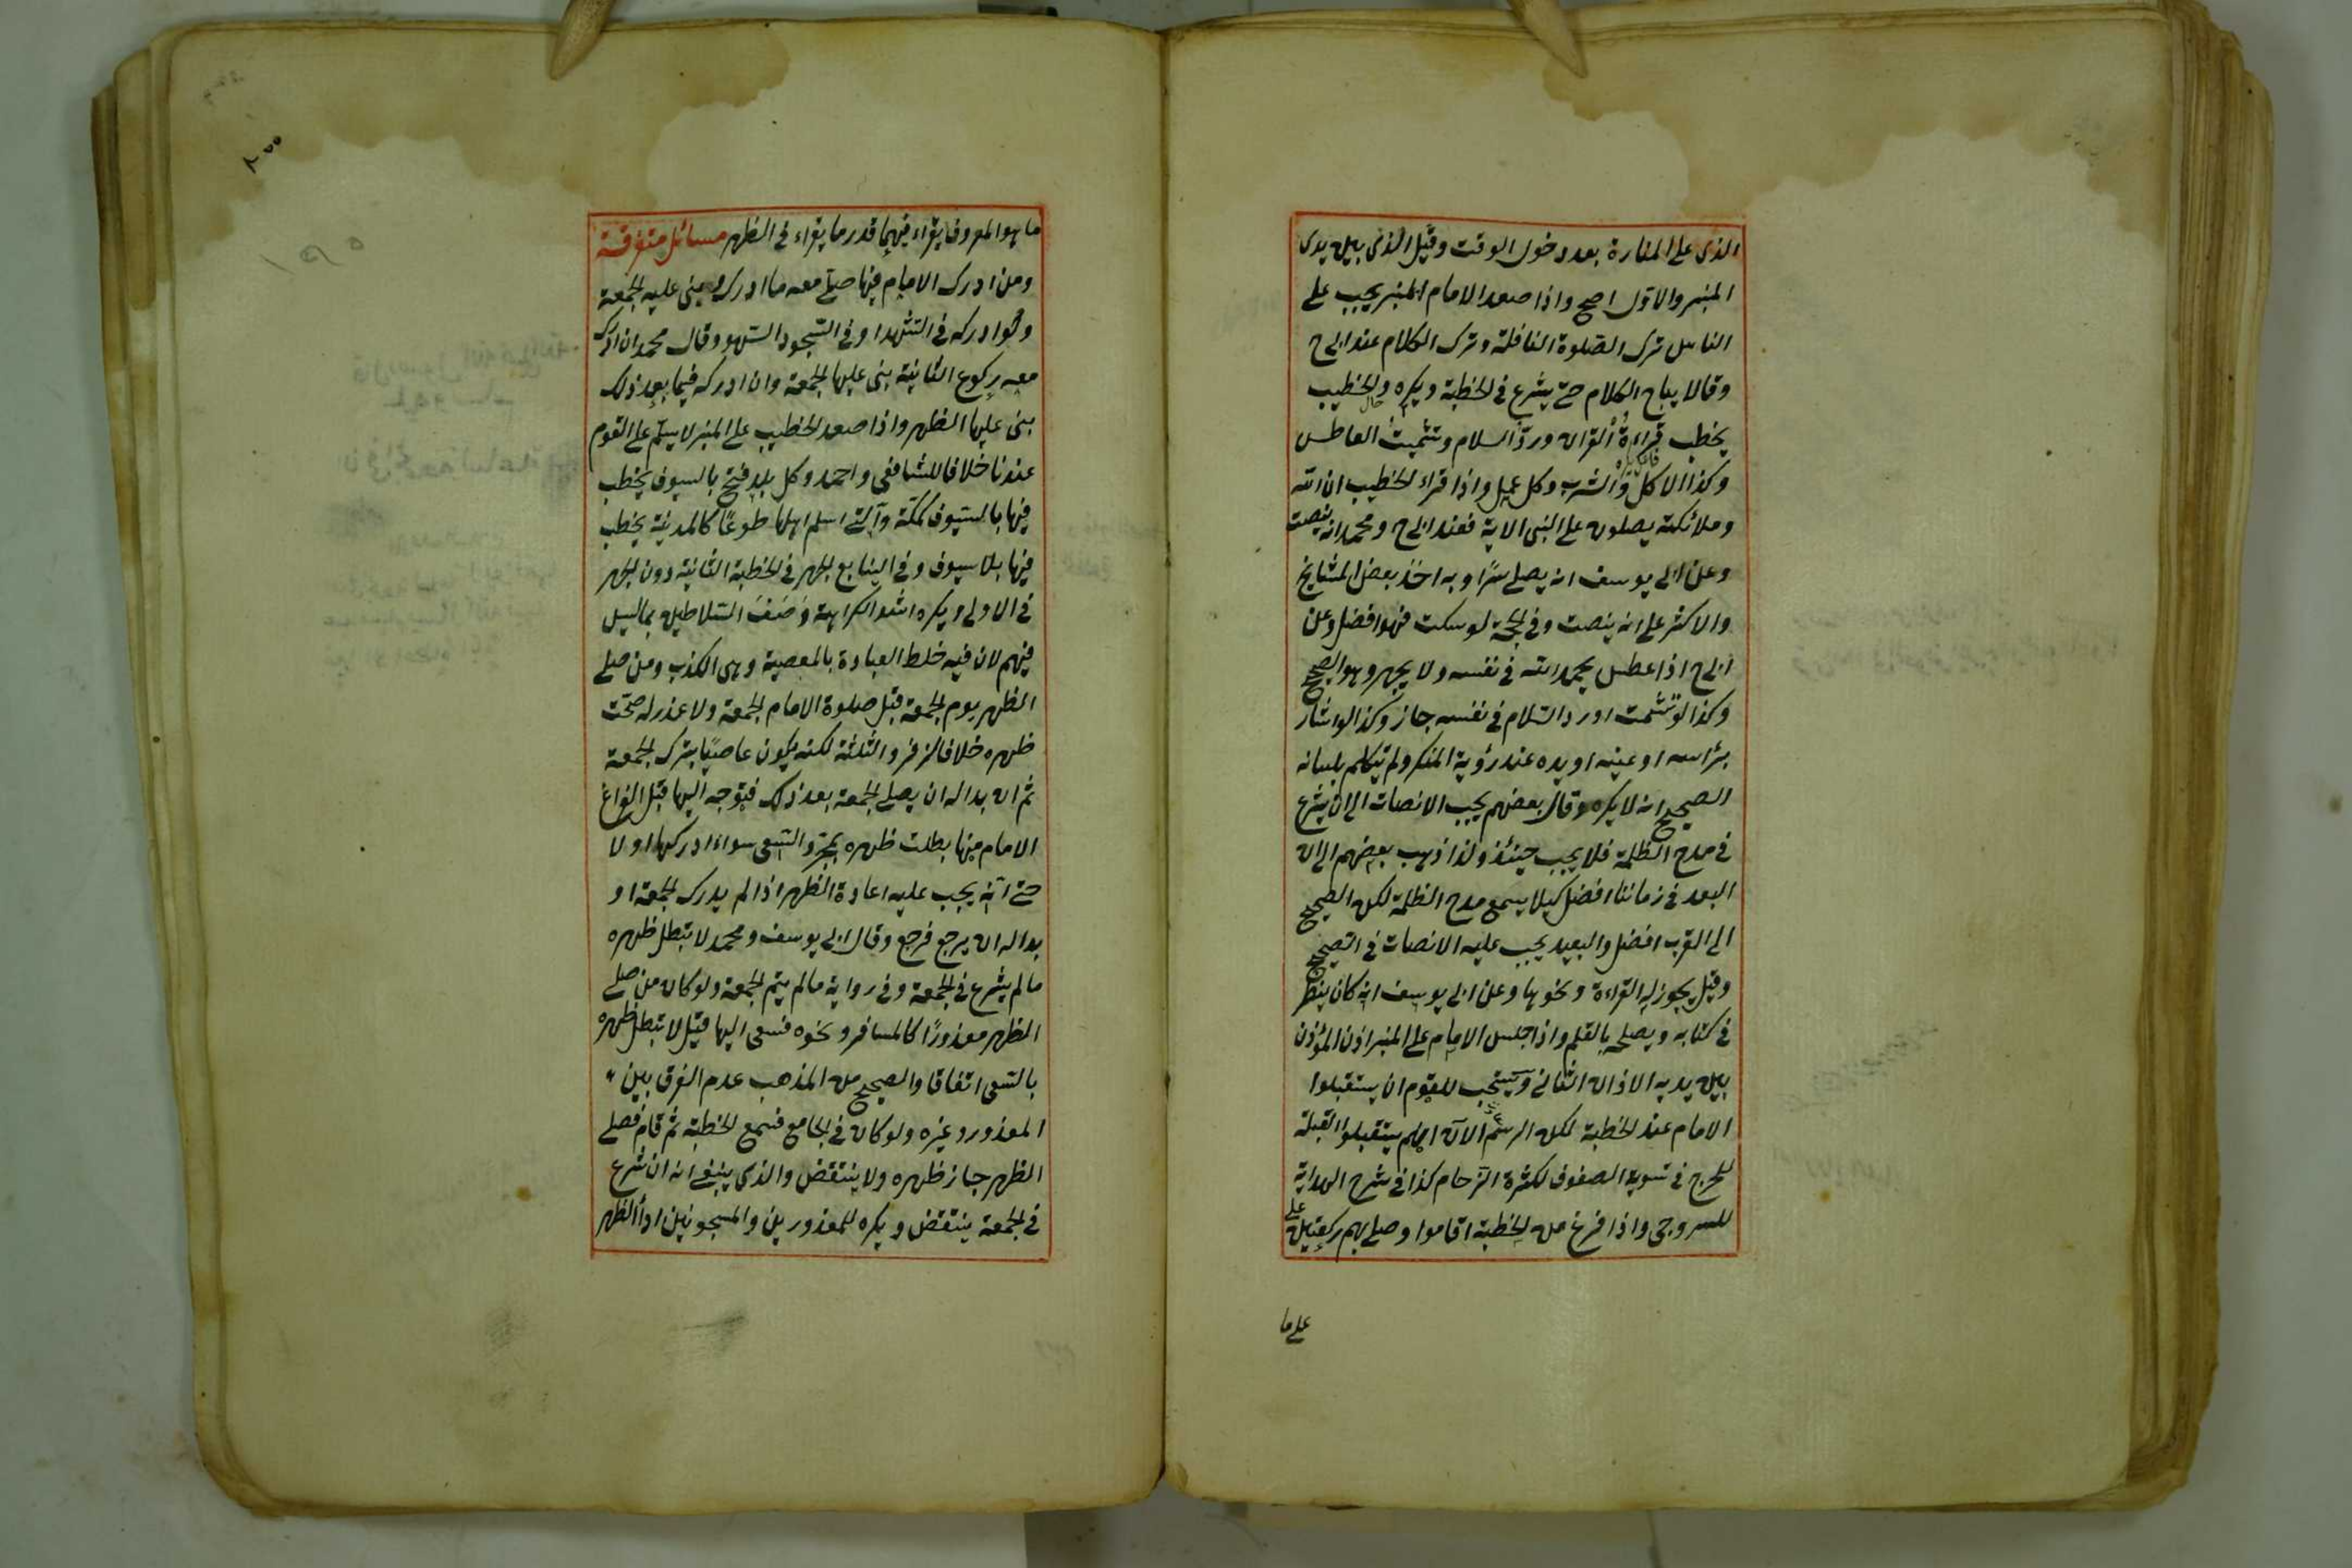 الذى على المنارة بعد دخول الوقت وقيل الذى بين يدى
المنبر والاول اصح واذا صعد الامام المنبر يجب على
الناس ترك الصلوة النافلة وترك الكلام عند ابى ح
وقالا يباح الكلام حتى يشرع فى الخطبة ويكره والخطيب
حال
يخطب قراءة القران ورد السلام وتشميت العاطس
وكذا الاكل والشرب وكل عمل واذا قراء الخطيب ان الله
وملائكته يصلون على النبى الاية فعند ابى ح ومحمد انه ينصت
وعن ابى يوسف انه يصلى سرا وبه اخذ بعض المشايخ
والاكثر على انه ينصت وفى الحجة لو سكت فهو افضل وعن
ابى ح اذا عطس يحمد الله فى نفسه ولا يجهر وهو الصحيح
وكذا لو شمت او رد السلام فى نفسه جاز وكذا لو اشار
برأسه او عينه او يده عند رؤية المنكر ولم يتكلم بلسانه
الصحيح انه لا يكره وقال بعضهم يجب الانصات الى ان يشرع
فى مدح الظلمة فلا يجب حينئذ ولذا ذهب بعضهم الى ان
البعد فى زماننا افضل كيلا يسمع مدح الظلمة لكن الصحيح
الى القرب افضل والبعيد يجب عليه الانصات فى الصحيح
وقيل يجوز له القراءة ونحوها وعن ابى يوسف انه كان ينظر
فى كتابه ويصلحه بالقلم واذا جلس الامام على المنبر اذن المؤذن
بين يديه الاذان الثانى ويستحب للقوم ان يستقبلوا
الامام عند الخطبة لكن الرسم الآن انهم يستقبلوا القبلة
للحرج فى تسوية الصفوف لكثرة الزحام كذا فى شرح الهداية
للسروجى واذا فرغ من الخطبة اقاموا وصلى بهم ركعتين على
على ما
ما هو المعروف يقراء فيهما قدر ما يقراء فى الظهر مسائل متفرقة
ومن ادرك الامام فيها صلى معه ما ادرك وبنى عليه الجمعة
ولو ادركه فى التشهد او فى السجود السهو وقال محمد ان ادرك
معه ركوع الثانية بنى عليها الجمعة وان ادركه فيما بعد ذلك
بنى عليها الظهر واذا صعد الخطيب على المنبر لا يسلم على القوم
عندنا خلافا للشافعى واحمد وكل بلد فتح بالسيوف يخطب
فيها بالسيوف كمكة والتى اسلم اهلها طوعا كالمدينة يخطب
فيها بلا سيوف وفى الينابع الجهر فى الخطبة الثانية دون الجهر
فى الاولى ويكره اشد الكراهة وصف السلاطين بما ليس
فيهم لان فيه خلط العبادة بالمعصية وهى الكذب ومن صلى
الظهر يوم الجمعة قبل صلوة الامام الجمعة ولا عذر له صحت
ظهره خلافا لزفر والثلثة لكنه يكون عاصيا بترك الجمعة
ثم ان بدا له ان يصلى الجمعة بعد ذلك فتوجه اليها قبل الفراغ
الامام منها بطلت ظهره بمجرد السعى سواء ادركها او لا
حتى انه يجب عليه اعادة الظهر اذا لم يدرك الجمعة او
بدا له ان يرجع فرجع وقال ابى يوسف ومحمد لا تبطل ظهره
ما لم يشرع فى الجمعة وفى رواية ما لم يتم الجمعة ولو كان من صلى
الظهر معذورا كالمسافر ونحوه فسعى اليها قيل لا تبطل ظهره
بالسعى اتفاقا والصحيح من المذهب عدم الفرق بين
المعذور وغيره ولو كان فى الجامع فسمع الخطبة ثم قام فصلى
الظهر جاز ظهره ولا ينتقض والذى ينبغى انه ان شرع
فى الجمعة ينتقض ويكره للمعذورين والمسجونين اداء الظهر